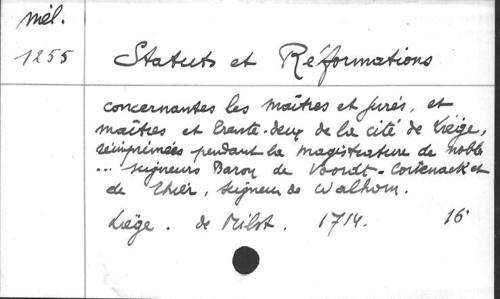 mél.
1255
Statuts et Réformations
concernantes les maîtres et jurés, et
maîtres et trente-deux de la cité de Liége,
réimprimées pendant la magistrature de noble
... seigneurs Baron de Voordt-Cortenack et
de Thier, seigneur de Walhorn.
Liége. de Milst. 1714. 16°